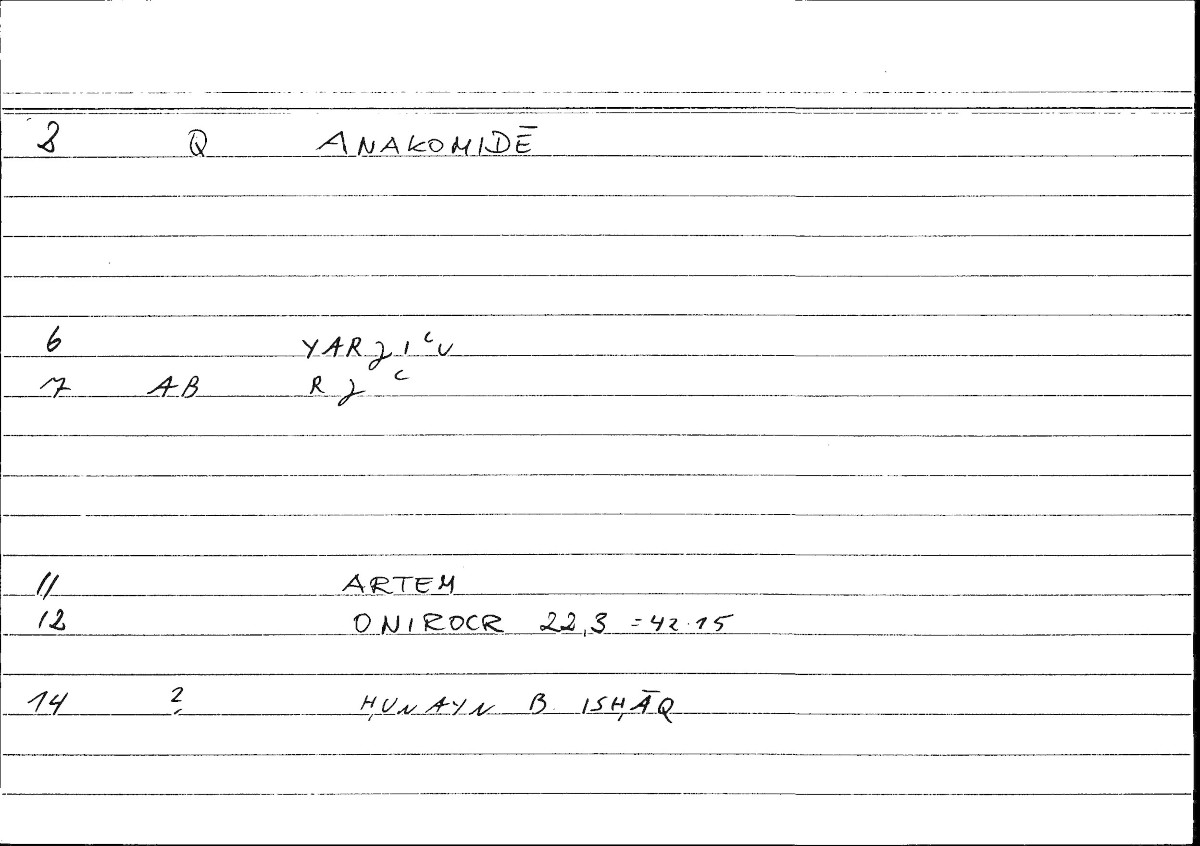 2 Q ANAKOMIDĒ
6 YARJIʿU
7 AB RJʿ
11 ARTEM
12 ONIROCR 22,3 = 42.15
14 ? ḤUNAYN B ISḤĀQ